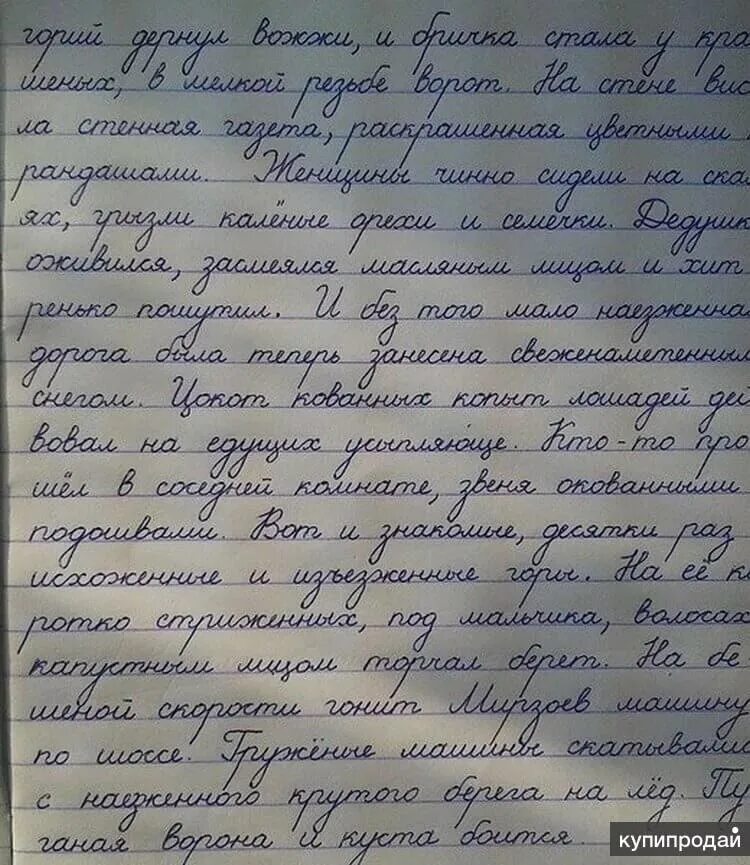 горий дернул вожжи, и бричка стала у кра
шеных, в мелкой резьбе ворот. На стене вис
ла стенная газета, раскрашенная цветными
рандашами. Женщины чинно сидели на ска
ях, грызли калёные орехи и семечки. Дедушк
оживился, засмеялся масляным лицом и хит
ренько пошутил. И без того мало наезженна
дорога была теперь занесена свеженаметенным
снегом. Цокот кованных копыт лошадей дей
вовал на едущих усыпляюще. Кто-то про
шёл в соседней комнате, звеня окованными
подошвами. Вот и знакомые, десятки раз
исхоженные и изъезженные горы. На её ко
ротко стриженных, под мальчика, волосах
капустным лицом торчал берет. На бе-
шеной скорости гонит Мирзоев машину
по шоссе. Гружёные машины скатывали
с наезженного крутого берега на лёд. Пу
ганая ворона и куста боится.
купипродай